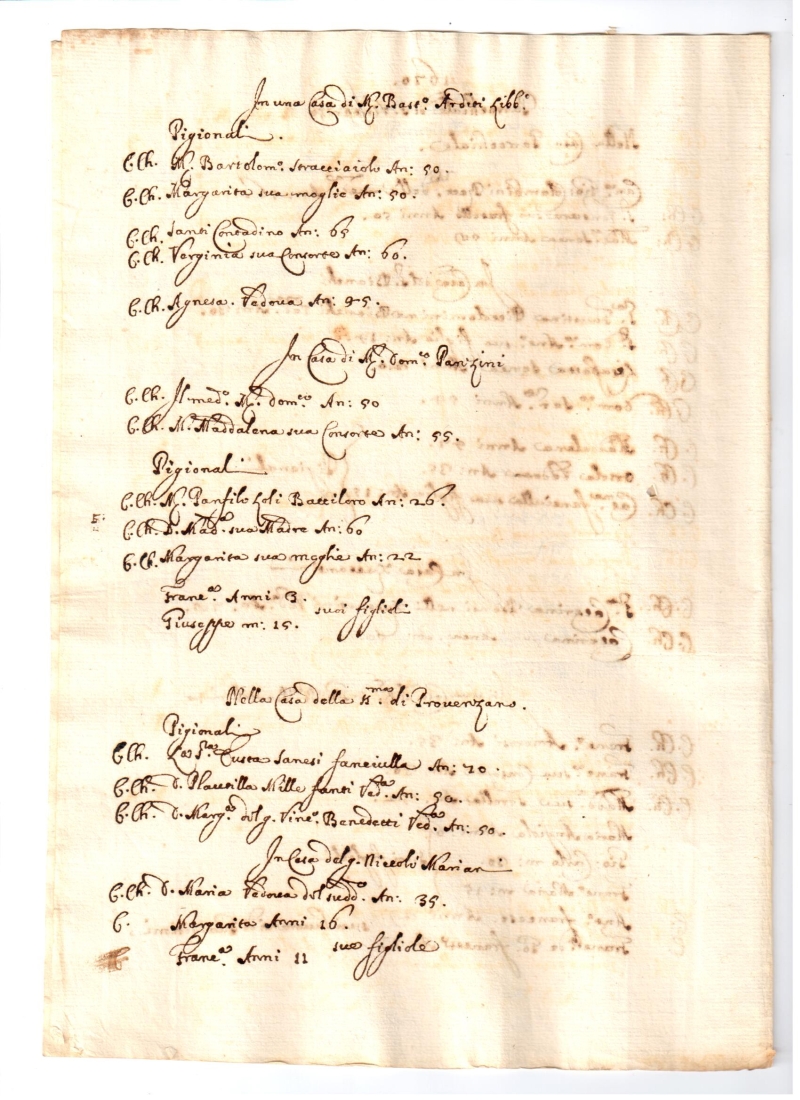 In una Casa di M.º Bast.º Arditi Libb.º
Pigionali.
C.Ch. M.º Bartolom.º Stracciaiolo An: 50.
C.Ch. Margarita sua moglie An: 50.
C.Ch. Santi Contadino An: 65
C.Ch. Verginia sua Consorte An: 60.
C.Ch. Agnesa Vedova An: 95.
In Casa di M.º Dom.co Panzini
C.Ch. Il med.º M.º Dom.co An: 50
C.Ch. M.ª Maddalena sua Consorte An: 55.
Pigionali
C.Ch. M.º Panfilo Loli Battiloro An: 26.
C.Ch. D. Mad.ª sua Madre An: 60
C.Ch. Margarita sua moglie An: 22
Franc.co Anni 3.
suoi figlioli
Giuseppe m: 15.
Nella Casa della SS.ma di Provenzano.
Pigionali
C.Ch. La S.ra Sanesi fanciulla An: 20.
C.Ch. D. Plautilla Mille fanti Ved.va An: 50.
C.Ch. D. Marg.ª del q. Vinc.º Benedetti Ved.va An: 50.
In Casa del q. Niccolò Mariani
C.Ch. D. Maria Vedova del sudd.º An: 35.
C. Margarita Anni 16.
sue figliole
Franc.ca Anni 11